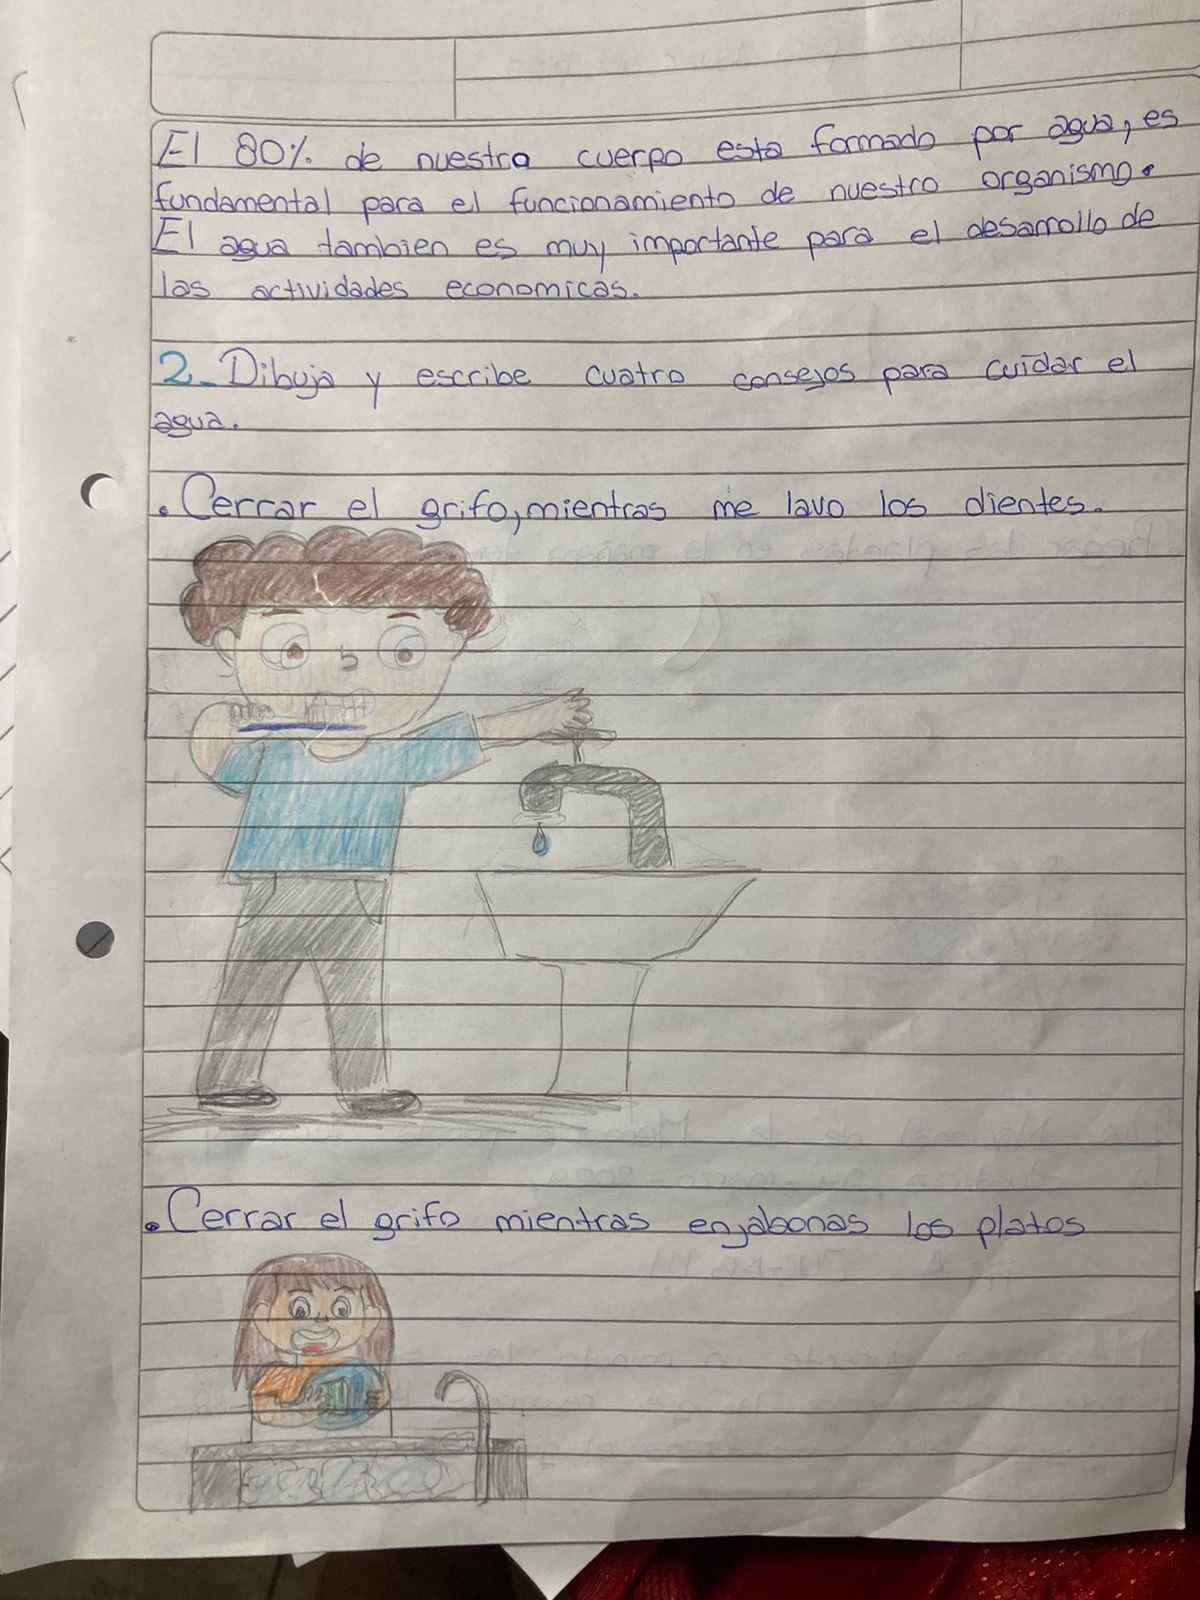 El 80% de nuestro cuerpo esta formado por agua, es
fundamental para el funcionamiento de nuestro organismo.
El agua tambien es muy importante para el desarrollo de
las actividades economicas.
2. Dibuja y escribe cuatro consejos para cuidar el
agua.
. Cerrar el grifo, mientras me lavo los dientes.
. Cerrar el grifo mientras enjabonas los platos